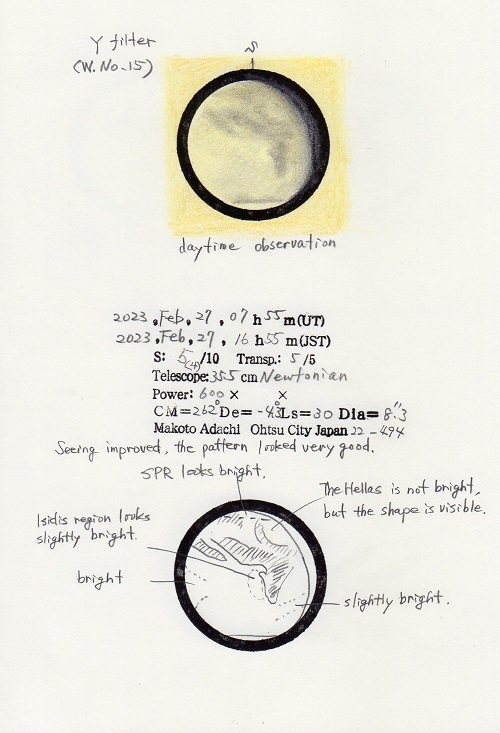 Y filter
(W.No.15)
S
daytime observation
2023, Feb, 27, 07 h 55 m (UT)
2023, Feb, 27, 16 h 55 m (JST)
S: 5(4)/10 Transp.: 5/5
Telescope: 355 cm Newtonian
Power: 600 × ×
CM=262° De= -4.3° Ls=30 Dia= 8".3
Makoto Adachi Ohtsu City Japan 22-494
Seeing improved, the pattern looked very good.
SPR looks bright.
The Hellas is not bright,
but the shape is visible.
Isidis region looks
slightly bright.
bright
slightly bright.